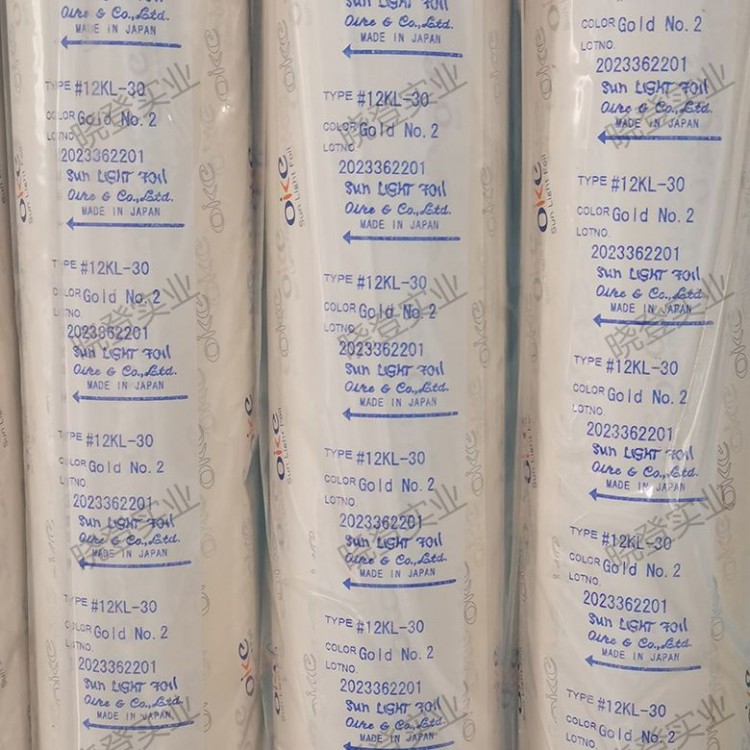 Oike & Co.,Ltd.
MADE IN JAPAN
TYPE #12KL-30
COLOR Gold No. 2
LOTNO.
2023362201
Sun LIGHT Foil
Oike & Co.,Ltd.
MADE IN JAPAN
TYPE #12KL-30
COLOR Gold No. 2
LOTNO.
2023362201
Sun LIGHT Foil
Oike & Co.,Ltd.
MADE IN JAPAN
TYPE #12KL-30
COLOR Gold No. 2
LOTNO.
2023362201
Sun LIGHT Foil
Oike & Co.,Ltd.
MADE IN JAPAN
TYPE #12KL-30
COLOR Gold No. 2
LOTNO.
2023362201
Sun LIGHT Foil
Oike & Co.,Ltd.
MADE IN JAPAN
OIKE
Sun Light Foil
Sun LIGHT Foil
Oike & Co.,Ltd.
MADE IN JAPAN
TYPE #12KL-30
COLOR Gold No. 2
LOTNO.
2023362201
Sun LIGHT Foil
Oike & Co.,Ltd.
MADE IN JAPAN
TYPE #12KL-30
COLOR Gold No. 2
LOTNO.
2023362201
Sun LIGHT Foil
Oike & Co.,Ltd.
MADE IN JAPAN
TYPE #12KL-30
COLOR Gold No. 2
LOTNO.
2023362201
Sun LIGHT Foil
Oike & Co.,Ltd.
MADE IN JAPAN
TYPE #12KL-30
COLOR Gold No. 2
LOTNO.
2023362201
Sun LIGHT Foil
Oike & Co.,Ltd.
MADE IN JAPAN
OIKE
Sun Light Foil
OIKE
Sun Light Foil
COLOR Gold No. 2
LOTNO.
2023362201
Sun LIGHT Foil
Oike & Co.,Ltd.
MADE IN JAPAN
TYPE #12KL-30
COLOR Gold No. 2
LOTNO.
2023362201
Sun LIGHT Foil
Oike & Co.,Ltd.
MADE IN JAPAN
TYPE #12KL-30
COLOR Gold No. 2
LOTNO.
2023362201
Sun LIGHT Foil
Oike & Co.,Ltd.
MADE IN JAPAN
TYPE #12KL-30
COLOR Gold No. 2
LOTNO.
2023362201
Sun LIGHT Foil
Oike & Co.,Ltd.
MADE IN JAPAN
TYPE #12KL-30
COLOR Gold No. 2
LOTNO.
OIKE
Sun Light Foil
晓登实业
晓登实业
晓登实业
晓登实业
晓登实业
晓登实业
晓登实业
晓登实业
晓登实业
晓登实业
晓登实业
晓登实业